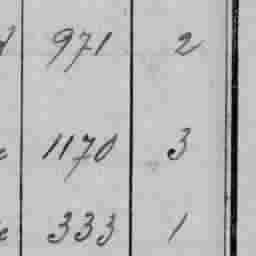 971 2
1170 3
333 1